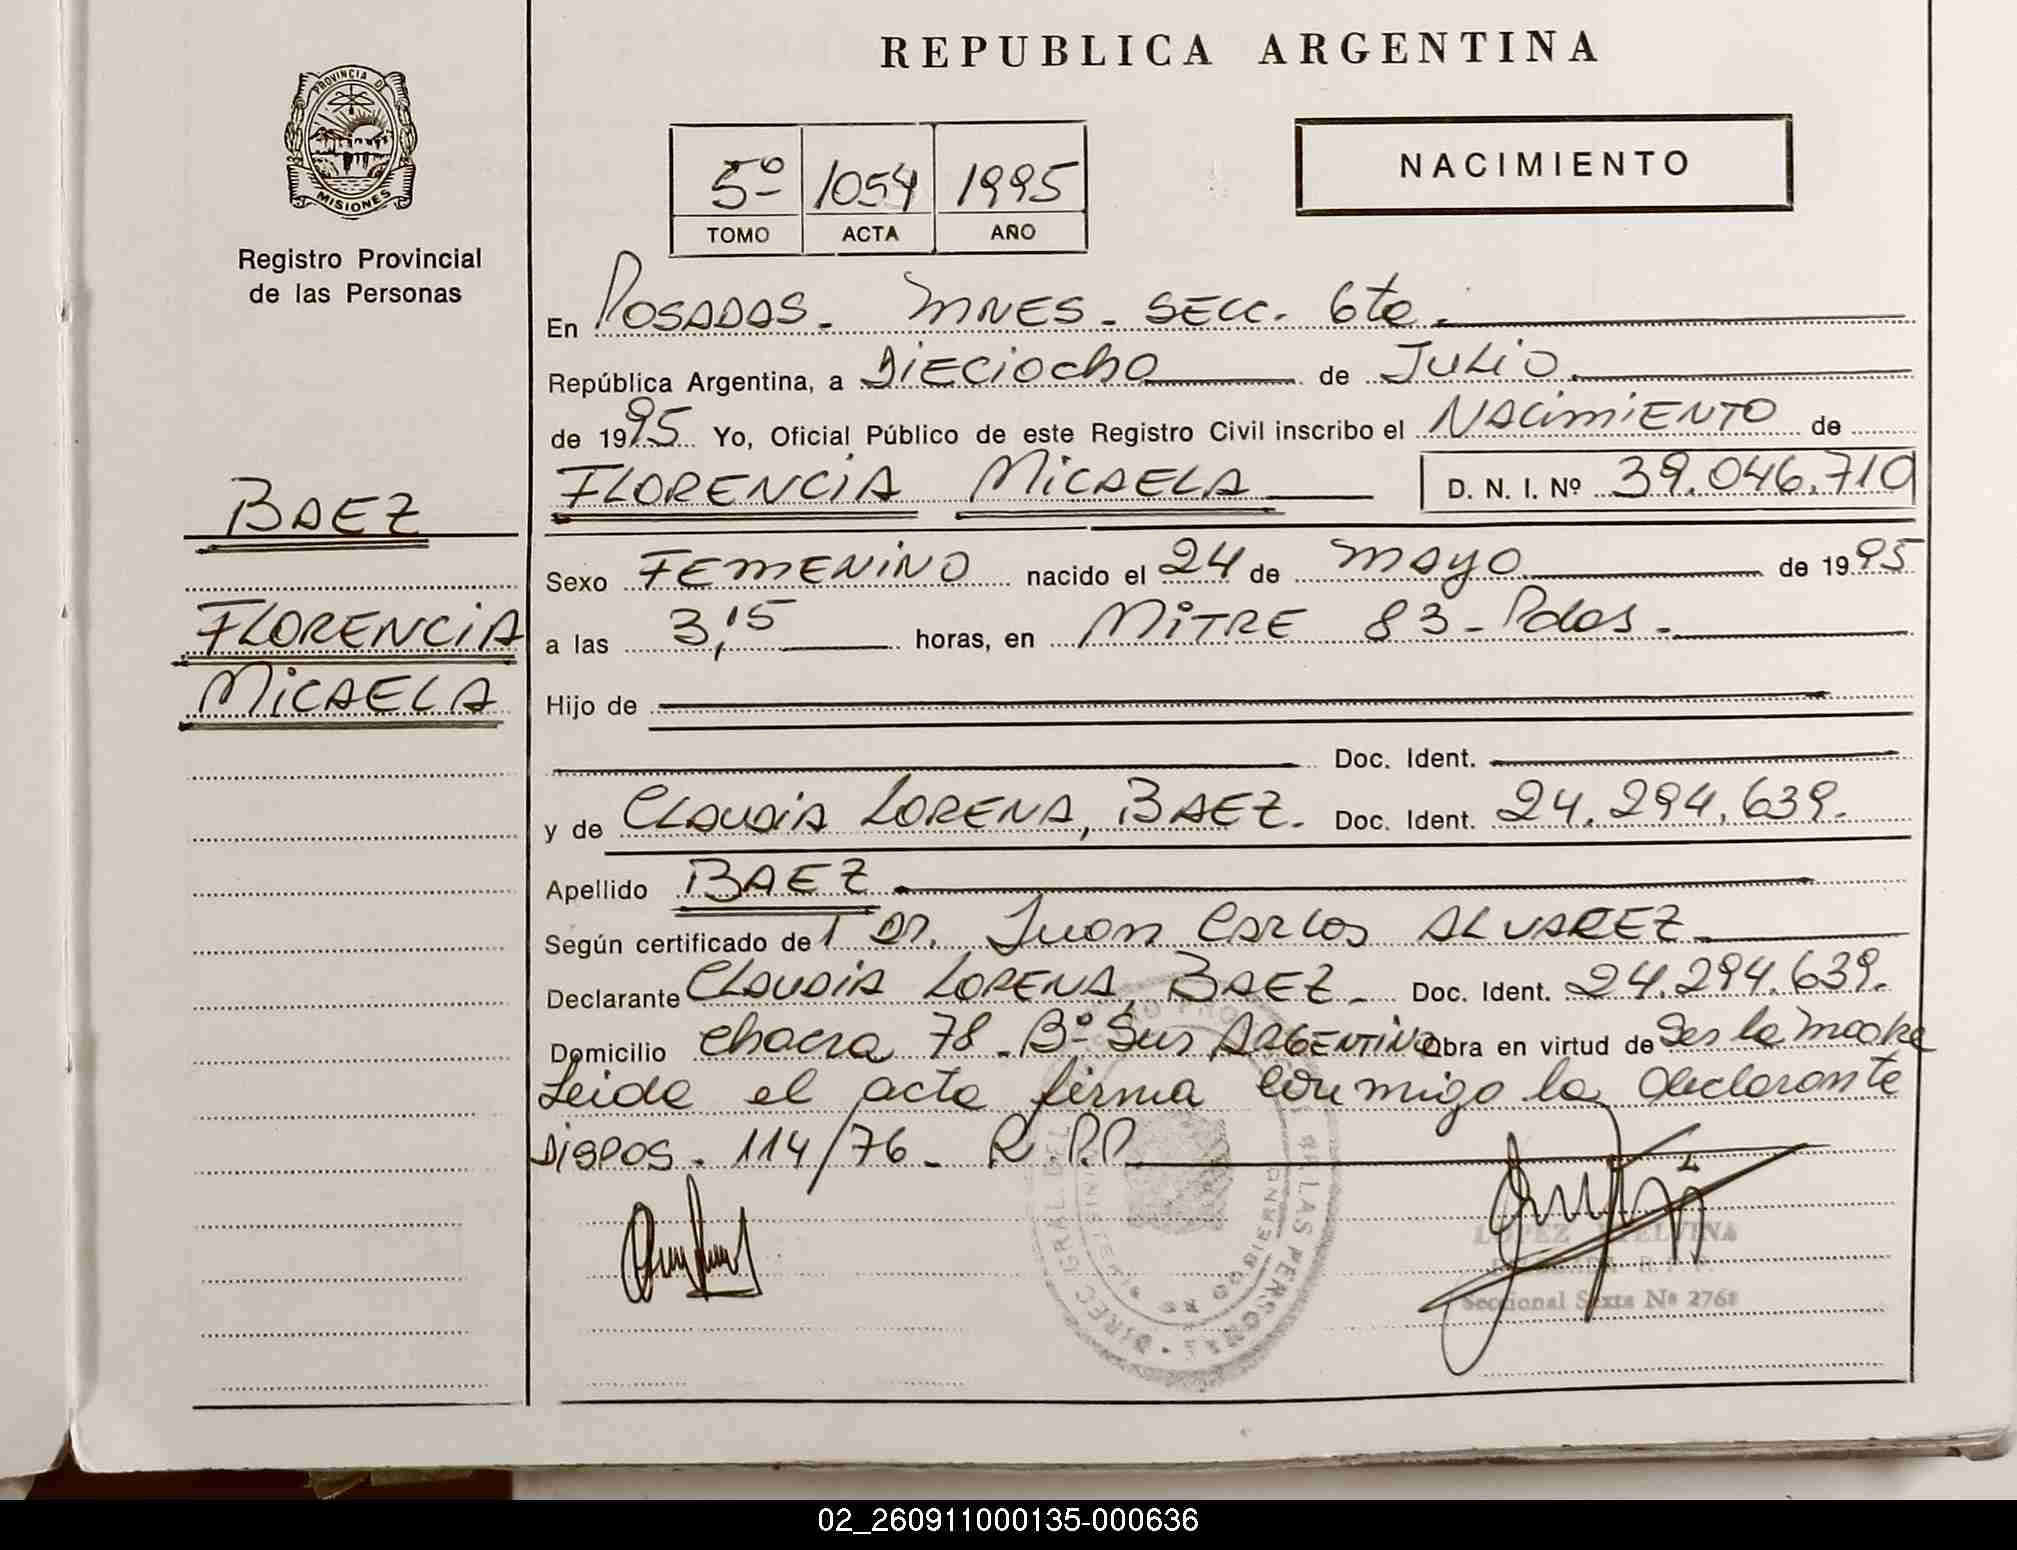 REPUBLICA ARGENTINA
PROVINCIA D
MISIONES
Registro Provincial
de las Personas
NACIMIENTO
5º 1054 1995
TOMO ACTA AÑO
En POSADAS. MNES. SECC. 6ta.
República Argentina, a DIECIOCHO de JULIO
de 1995 Yo, Oficial Público de este Registro Civil inscribo el NACIMIENTO de
FLORENCIA MICAELA D. N. I. Nº 39.046.710
BAEZ
FLORENCIA
MICAELA
Sexo FEMENINO nacido el 24 de MAYO de 1995
a las 3,15 horas, en MITRE 83 - Pdas.
Hijo de
Doc. Ident.
y de CLAUDIA LORENA, BAEZ. Doc. Ident. 24.294.639.
Apellido BAEZ
Según certificado de Dr. Juan Carlos ALVAREZ
Declarante CLAUDIA LORENA, BAEZ. Doc. Ident. 24.294.639.
Domicilio Chacra 78 - Bº Sur ARGENTINO Obra en virtud de Ser la madre
Leida el acta firma conmigo la declarante
DISPOS. 114/76 - R.P.P.
LOPEZ ETELVINA
Seccional Sexta Nº 2768
02_260911000135-000636